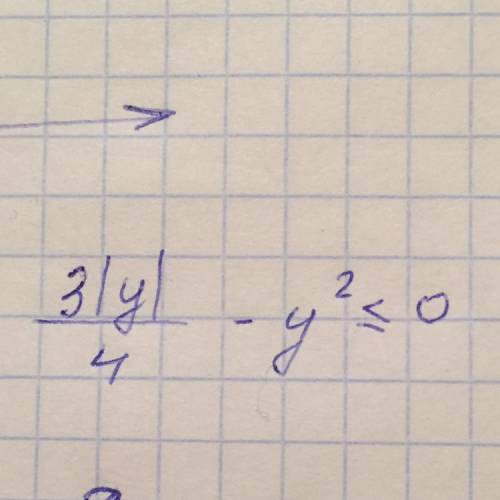 3|y|/4 - y² ≤ 0